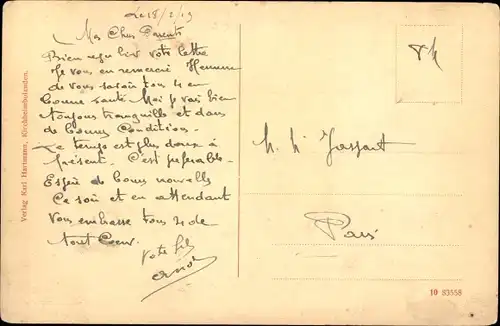 Le 18/2/19
Mes Chers Parents
Bien reçu hier votre lettre
Je vous en remercie Heureux
de vous savoir tous 4 en
bonne santé Moi je vais bien
toujours tranquille et dans
de bonnes Condition.
Le temps est plus doux à
présent. C'est préférable.
Espère de bonnes nouvelles
Ce soir et en attendant
vous embrasse tous 4 de
tout Coeur.
Votre fils
M. M.
Paris
Verlag Karl Hartmann, Kirchheimbolanden.
10 83558